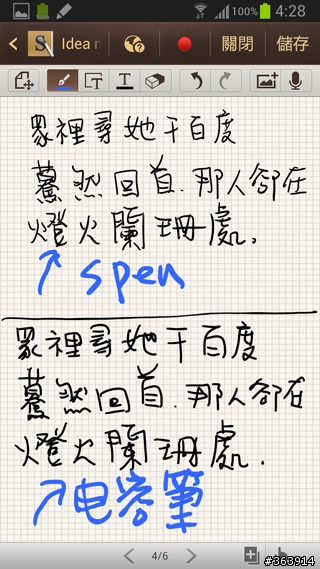 100% 4:28
S Idea n 關閉 儲存
T T
眾裡尋她千百度
驀然回首.那人卻在
燈火闌珊處.
spen
眾裡尋她千百度
驀然回首.那人卻在
燈火闌珊處.
电容筆
4/6
#363914